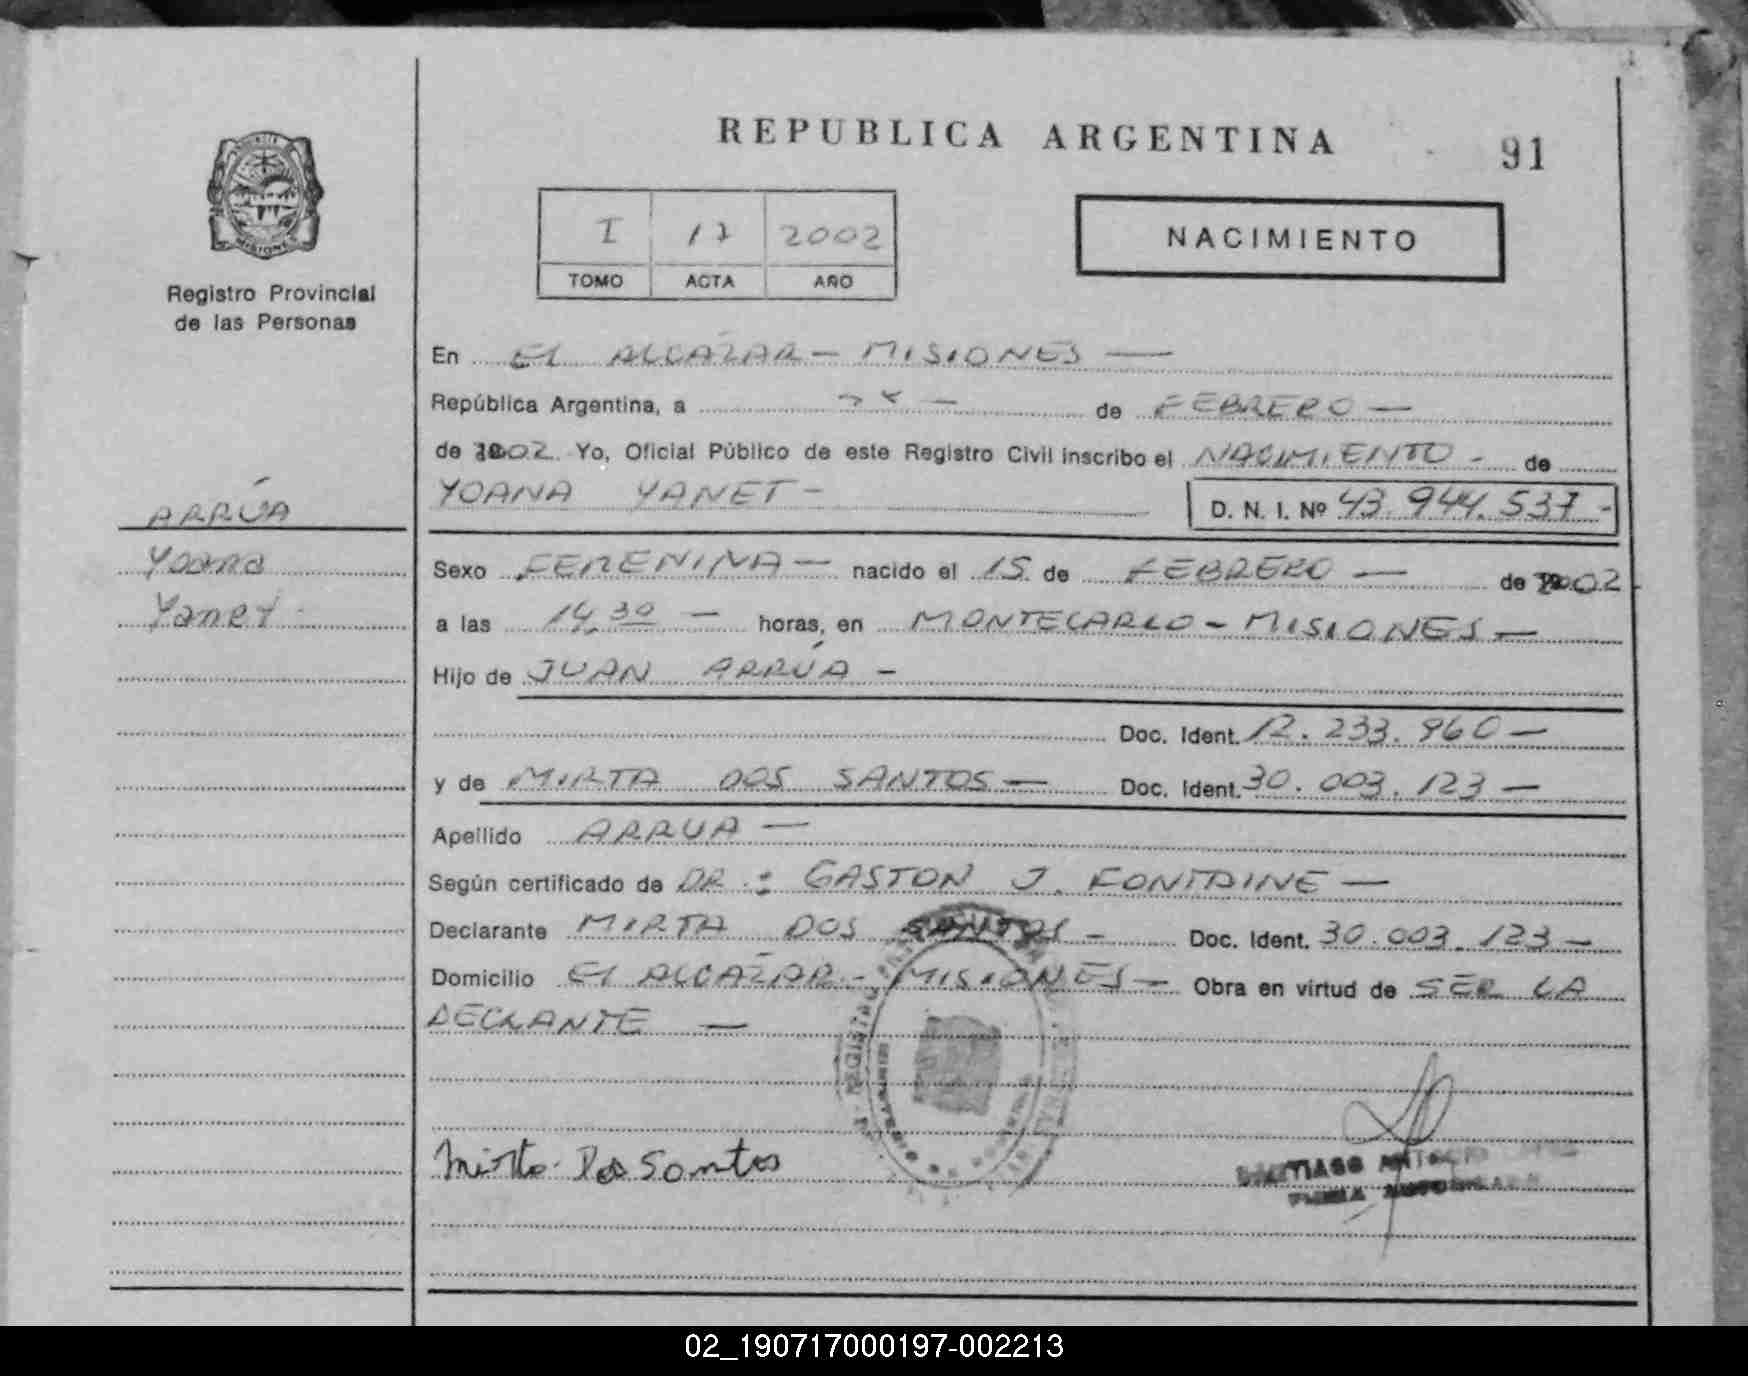 REPUBLICA ARGENTINA
91
I 17 2002
TOMO ACTA AÑO
NACIMIENTO
MISIONES
Registro Provincial
de las Personas
ARRÚA
Yoana
Yanet
En El ALCAZAR - MISIONES —
República Argentina, a de FEBRERO —
de 2002 Yo, Oficial Público de este Registro Civil inscribo el NACIMIENTO - de
YOANA YANET - D. N. I. Nº 43.944.537 -
Sexo FEMENINA — nacido el 15 de FEBRERO — de 2002 -
a las 14,30 — horas, en MONTECARLO - MISIONES —
Hijo de JUAN ARRÚA -
Doc. Ident. 12.233.960 —
y de MIRTA DOS SANTOS — Doc. Ident. 30.003.123 —
Apellido ARRUA —
Según certificado de DR : GASTON J. FONTAINE —
Declarante MIRTA DOS SANTOS - Doc. Ident. 30.003.123 —
Domicilio El ALCAZAR - MISIONES — Obra en virtud de SER LA
DECLANTE —
Mirta Dos Santos
SANTIAGO
02_190717000197-002213